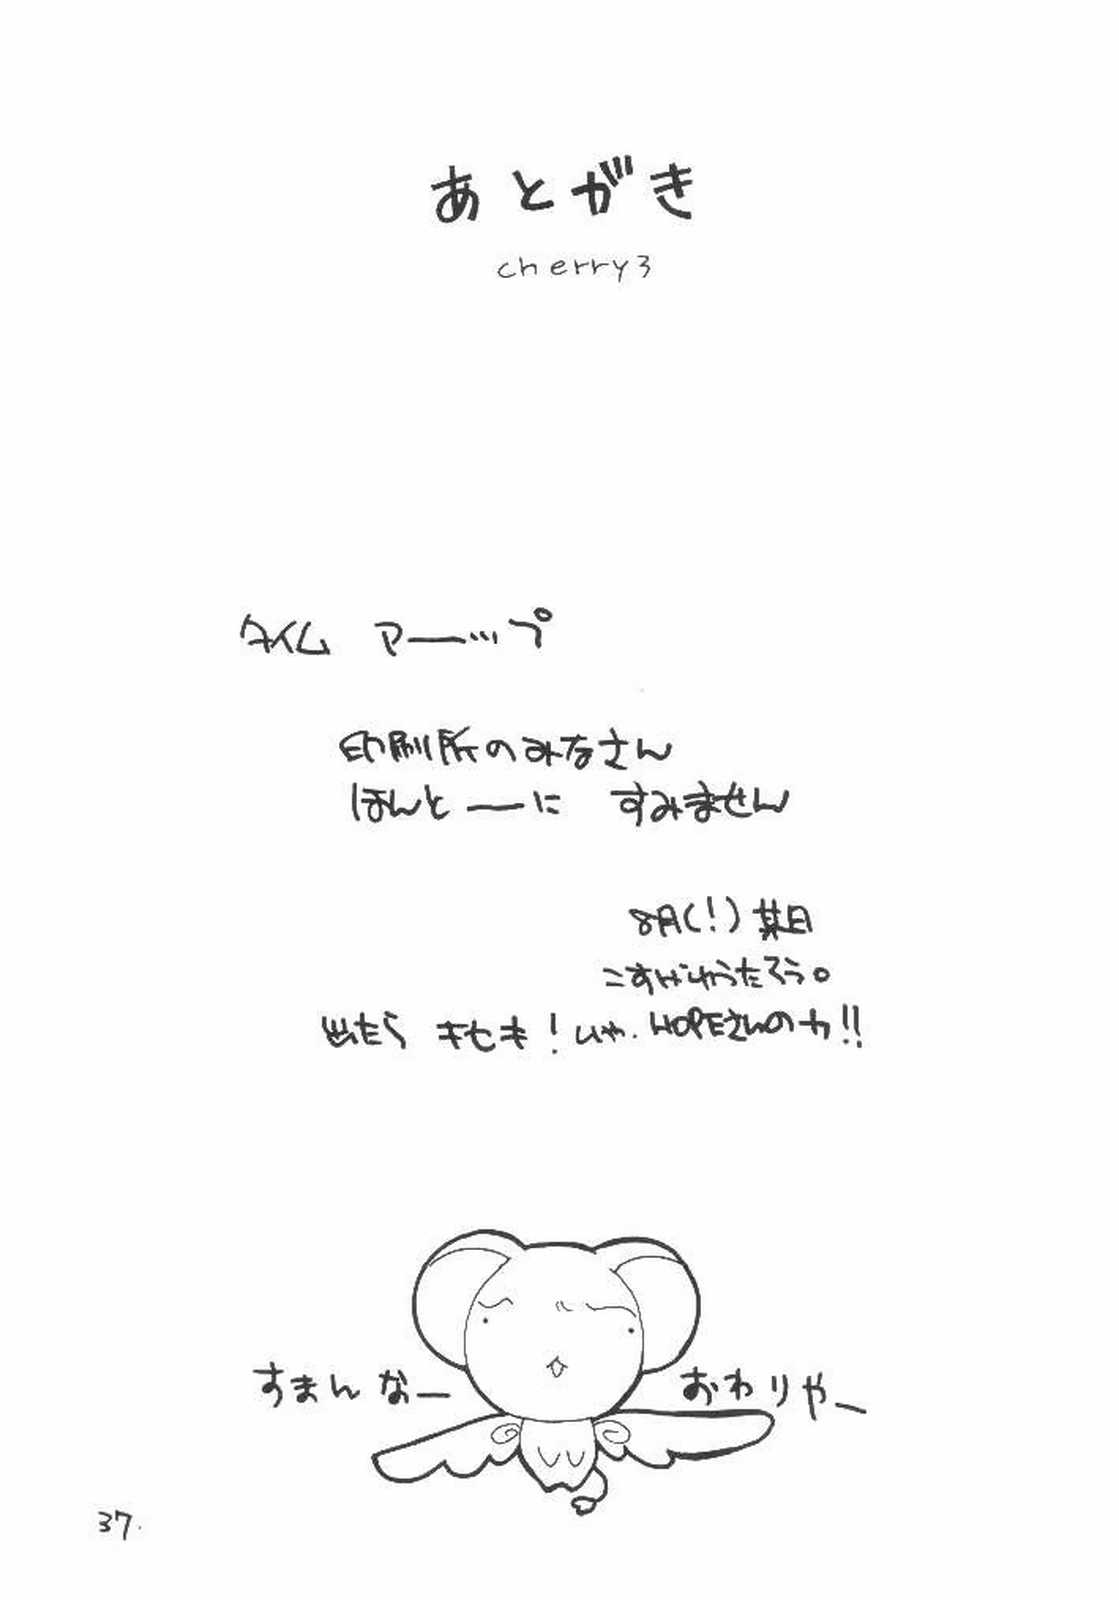 あとがき
cherry3
タイム アー…プ
印刷所のみなさん
ほんとーに すみません
8月(!)某日
こすぎじゅうたろう。
出たら キセキ! いや. HOPEさんの力!!
すまんなー
おわりやー
37.